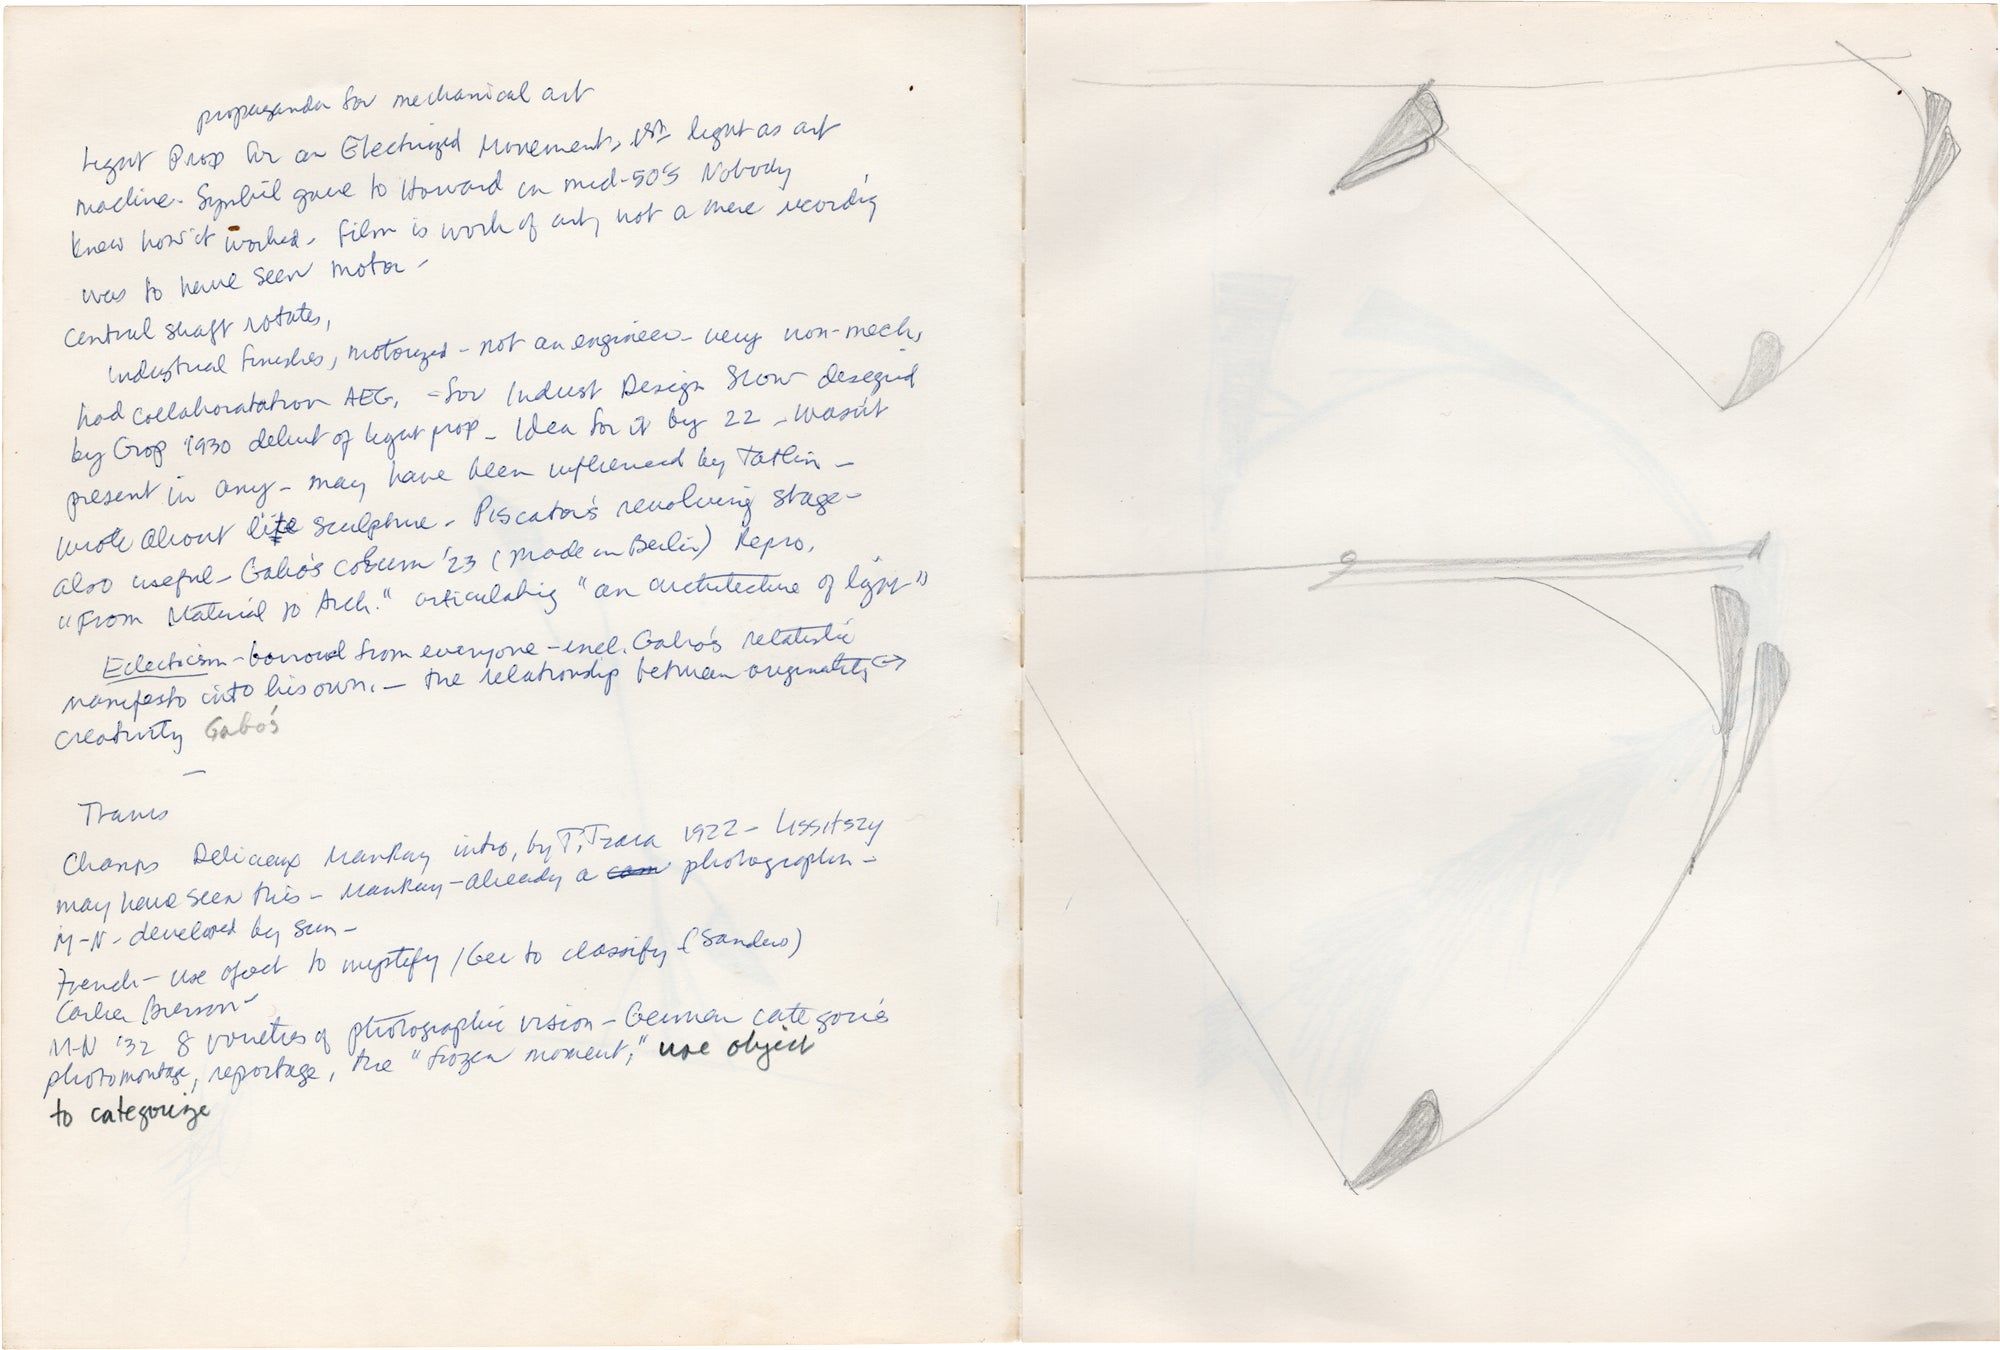 propaganda for mechanical art
Light Prop for an Electrized Movement, 1st light as art
machine. Symbil gave to Howard in mid-50's Nobody
knew how it worked. Film is work of art, not a mere recordig
was to have seen motor -
Central shaft rotates,
Industrial finishes, motorized - not an engineer - very non-mech,
had collaboratation AEG, - for Indust Design Show desegnd
by Grop 1930 debut of light prop - Idea for it by 22 - wasn't
present in any - may have been influenced by Tatlin -
wrote about lite sculpture - Piscator's revolving stage -
also useful - Gabo's column '23 (made in Berlin) Repro,
"From Material to Arch." articulating "an architecture of light"
Eclecticism - borrowed from everyone - incl. Gabo's relatistic
manifesto into his own. - the relationship between originality ↔
creativity Gabo's
-
Champs Delicieux Man Ray intro, by T. Tzara 1922 - Lissitszy
may have seen this - Man Ray - already a photographer -
M-N - developed by sun -
French - use ofect to mystify / Ger to classify - (Sander)
Cartier Bresson -
M-N '32 8 varieties of photographic vision - German categories
photomontage, reportage, the "frozen moment," use object
to categorize